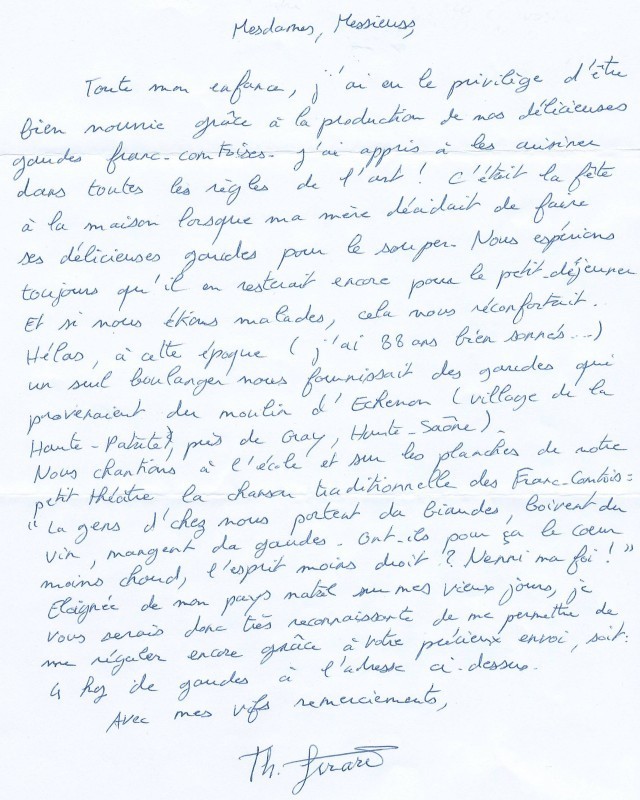 Mesdames, Messieurs,
Toute mon enfance, j'ai eu le privilège d'être
bien nourrie grâce à la production de nos délicieuses
gaudes franc-comtoises. J'ai appris à les cuisiner
dans toutes les règles de l'art ! C'était la fête
à la maison lorsque ma mère décidait de faire
ses délicieuses gaudes pour le souper. Nous espérions
toujours qu'il en resterait encore pour le petit-déjeuner
Et si nous étions malades, cela nous réconfortait.
Hélas, à cette époque (j'ai 88 ans bien sonnés...)
un seul boulanger nous fournissait des gaudes qui
provenaient du moulin d'Echenon (village de la
Haute-Patate), près de Gray, Haute-Saône).
Nous chantions à l'école et sur les planches de notre
petit théâtre la chanson traditionnelle des Franc-Comtois :
"La gens d'chez nous portent da biaudes, boivent du
vin, mangent da gaudes. Ont-ils pour ça le coeur
moins chaud, l'esprit moins droit ? Nenni ma foi !"
Eloignée de mon pays natal sur mes vieux jours, je
vous serais donc très reconnaissante de me permettre de
me régaler encore grâce à votre précieux envoi, soit :
4 kg de gaudes à l'adresse ci-dessus.
Avec mes vifs remerciements,
Th. Girard